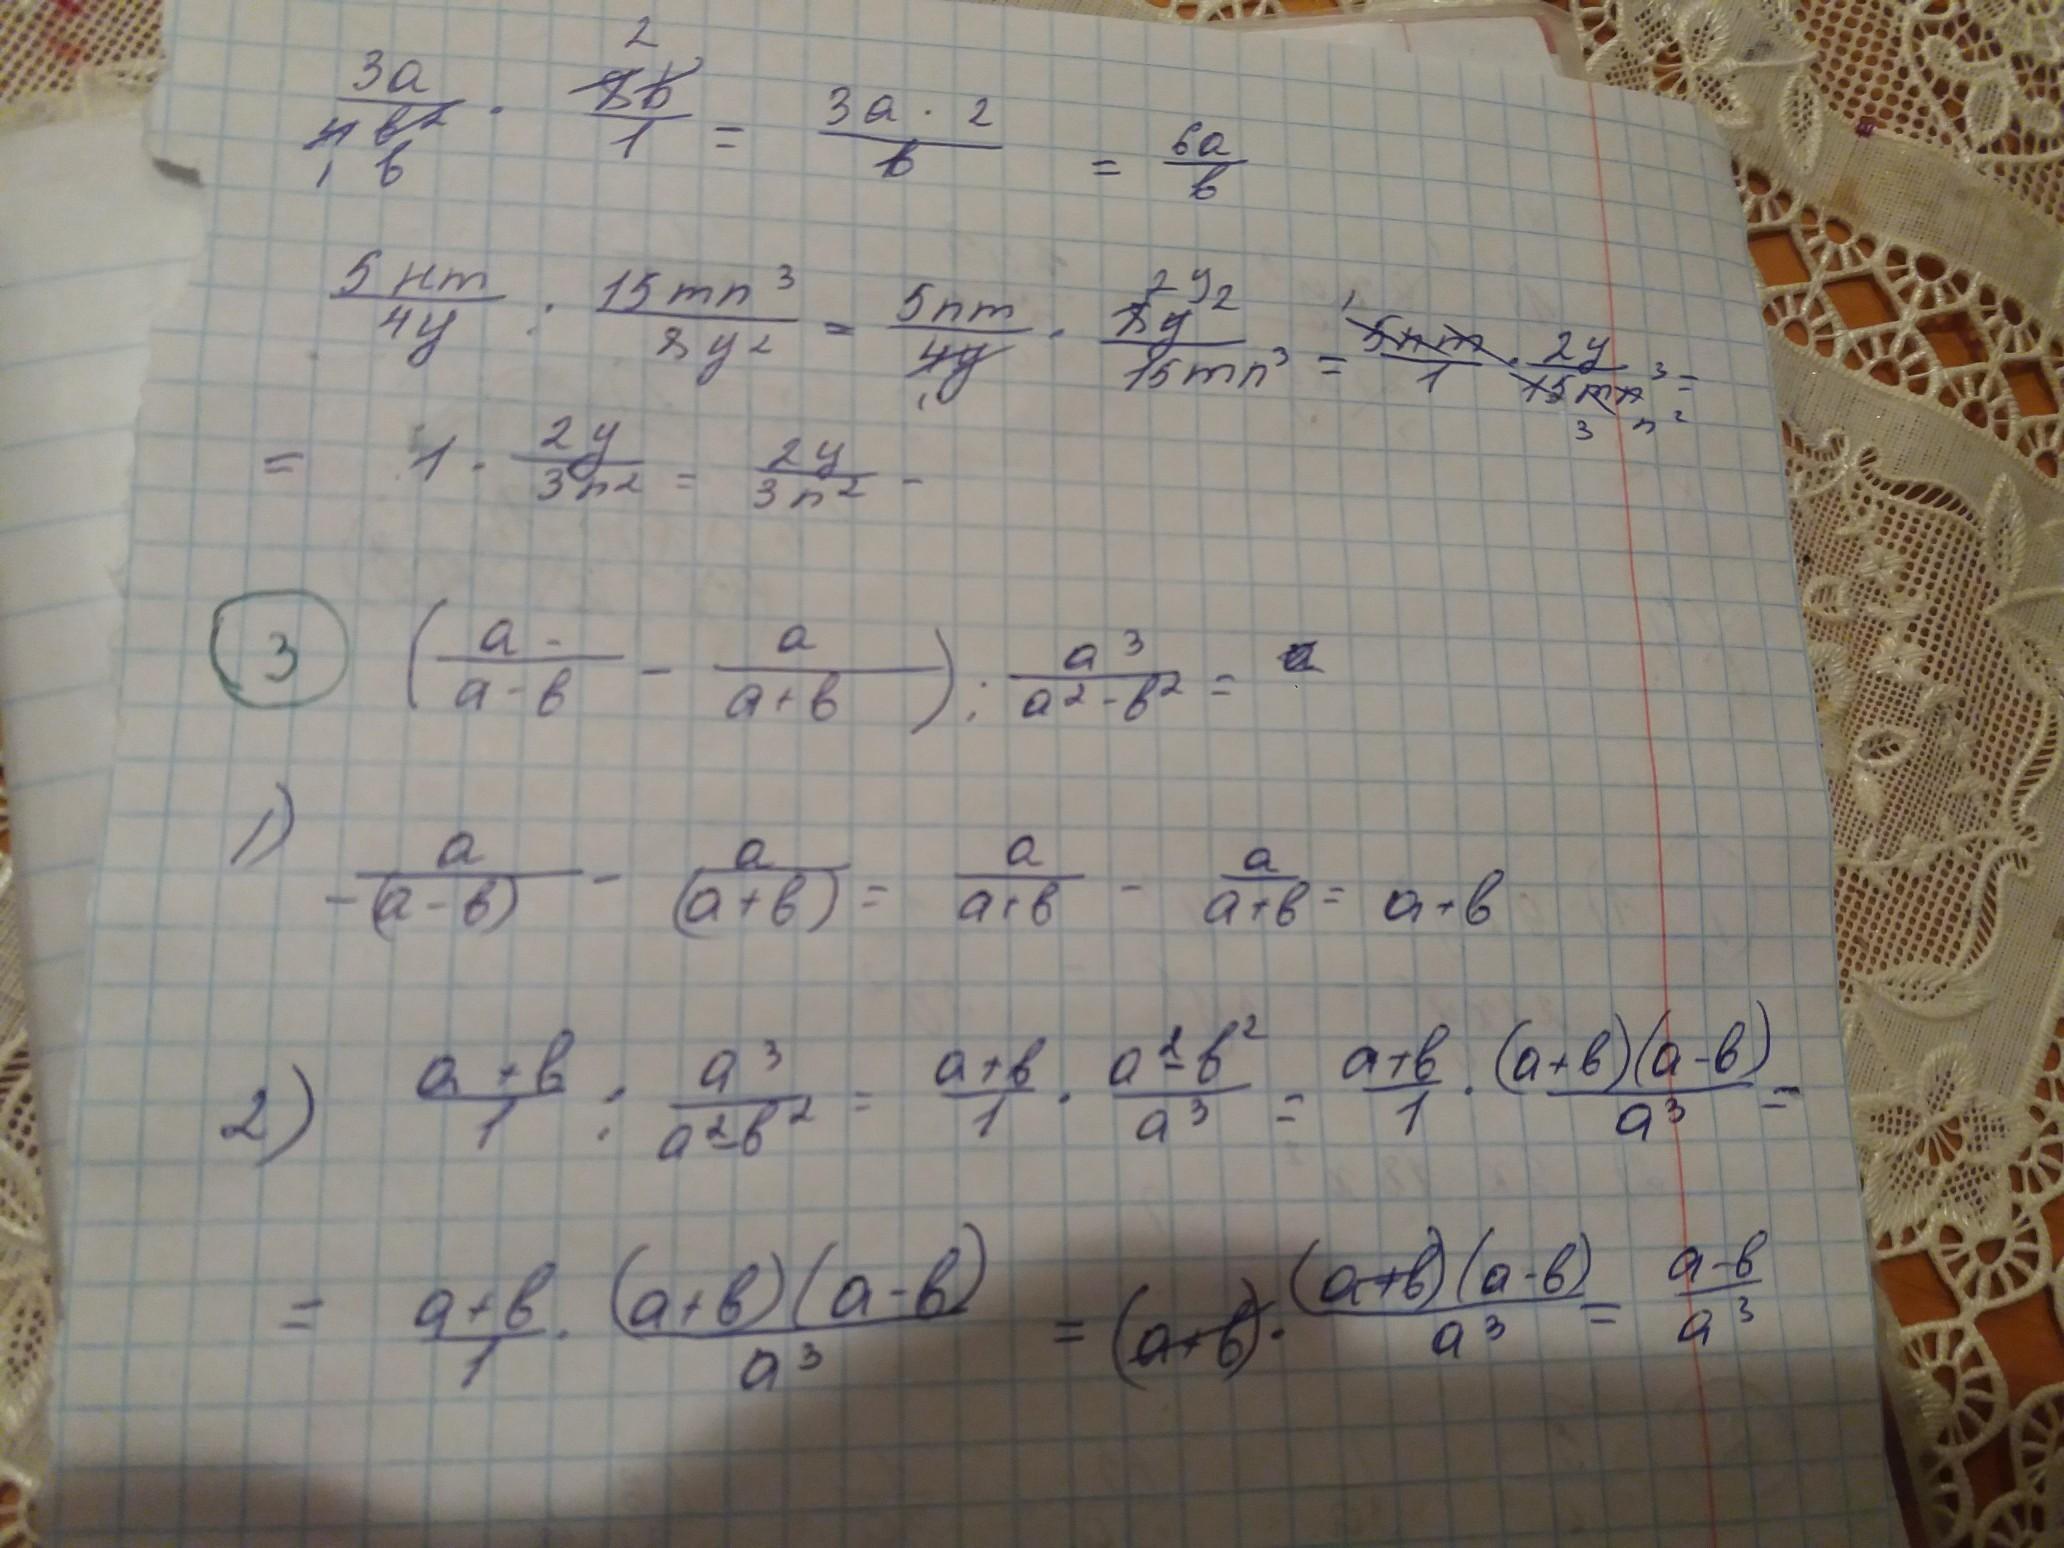 3a/4в² · 8в/1 = 3a · 2/в = 6a/в
5нm/4y : 15mn³/8y² = 5nm/4y · 8y²/15mn³ = 5nm/1 · 2y/15mn³ =
= 1 · 2y/3n² = 2y/3n² -
3 (a -/a-в - a/a+в) : a³/a²-в² = a
1) a/-(a-в) - a/(a+в) = a/a+в - a/a+в = a+в
2) a+в/1 : a³/a²-в² = a+в/1 · a²-в²/a³ = a+в/1 · (a+в)(a-в)/a³ =
= a+в/1 · (a+в)(a-в)/a³ = (a+в) · (a+в)(a-в)/a³ = a-в/a³